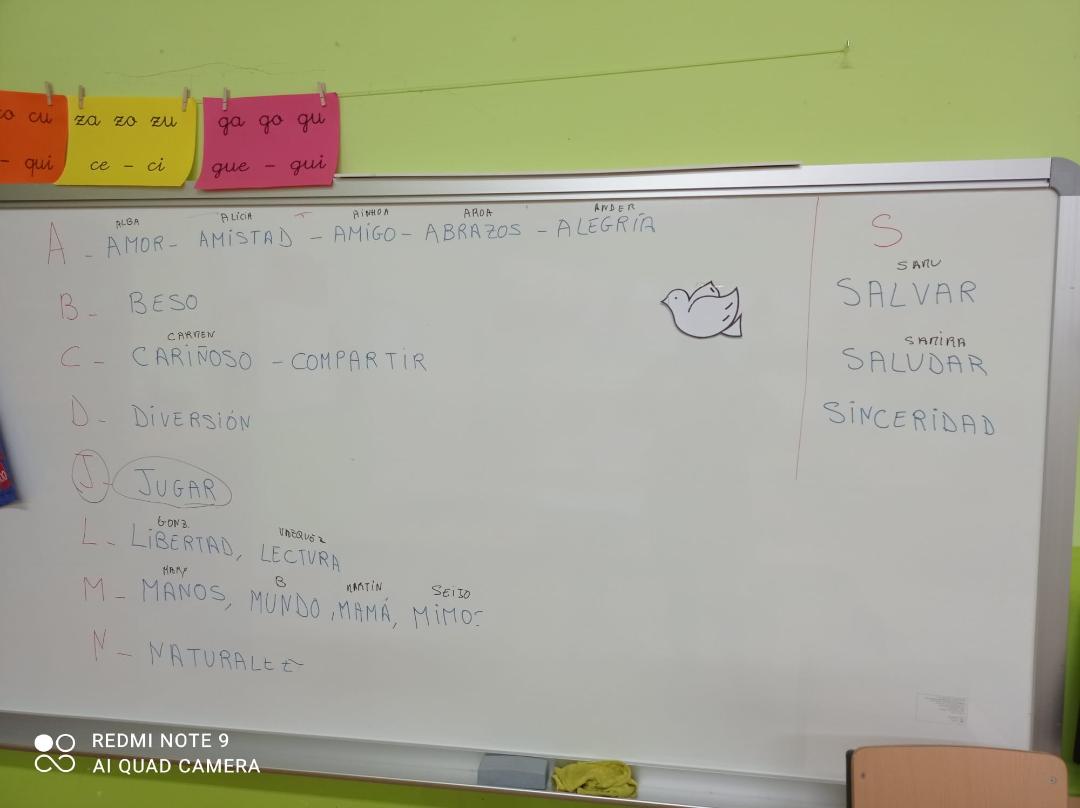 co cu
- qui
za zo zu
ce - ci
ga go gu
gue - gui
ALBA ALICIA AINHOA AROA ANDER
A - AMOR - AMISTAD - AMIGO - ABRAZOS - ALEGRÍA
B - BESO
CARMEN
C - CARIÑOSO - COMPARTIR
D - DIVERSIÓN
J - JUGAR
GONZ. VAZQUEZ
L - LIBERTAD, LECTURA
MARY B MARTÍN SEIJO
M - MANOS, MUNDO, MAMÁ, MIMOS
N - NATURALEZ
S
SAMU
SALVAR
SAMIRA
SALUDAR
SINCERIDAD
REDMI NOTE 9
AI QUAD CAMERA